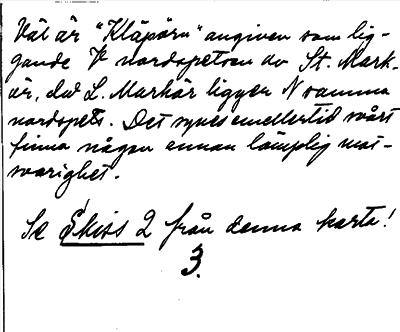 Väl är "Kläpörn" angiven som lig-
gande V nordspetsen av St. Mark-
är, dvs L. Markär ligger N samma
nordspets. Det synes emellertid svårt
finna någon annan lämplig mot-
svarighet.
Se Skiss 2 från denna karta!
3.